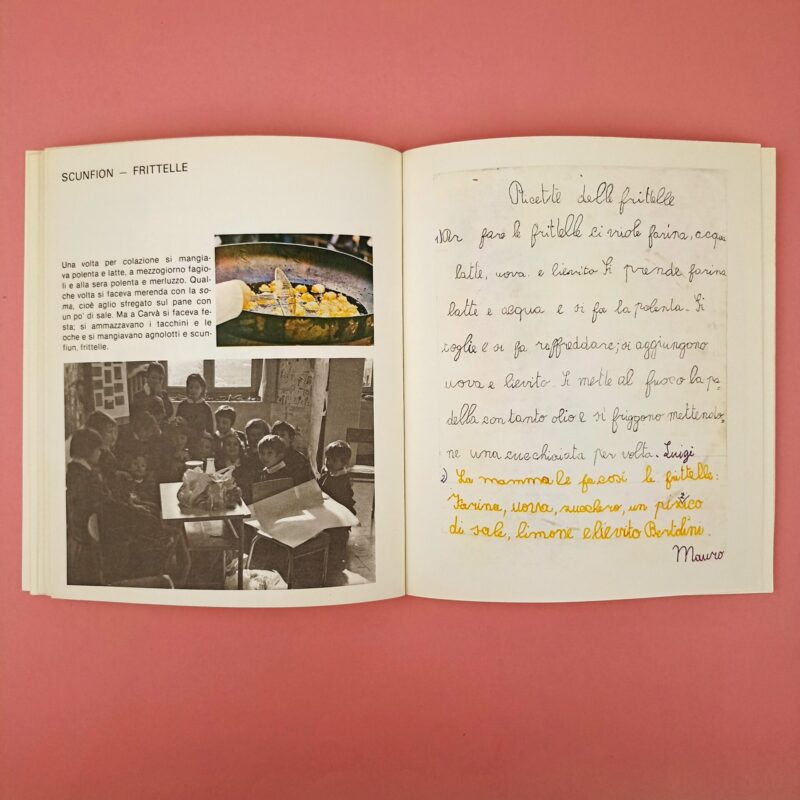 SCUNFION – FRITTELLE
Una volta per colazione si mangia-
va polenta e latte, a mezzogiorno fagio-
li e alla sera polenta e merluzzo. Qual-
che volta si faceva merenda con la so-
ma, cioè aglio sfregato sul pane con
un po' di sale. Ma a Carvà si faceva fe-
sta; si ammazzavano i tacchini e le
oche e si mangiavano agnolotti e scun-
fiun, frittelle.
Ricette delle frittelle
1) Per fare le frittelle ci vuole farina, acqua
latte, uova e lievito. Si prende farina
latte e acqua e si fa la polenta. Si
toglie e si fa raffreddare; si aggiungono
uova e lievito. Si mette al fuoco la pa-
della con tanto olio e si friggono mettendo-
ne una cucchiaiata per volta. Luigi
2) La mamma le fa così le frittelle:
Farina, uova, zucchero, un pizzico
di sale, limone e lievito Bertolini.
Mauro